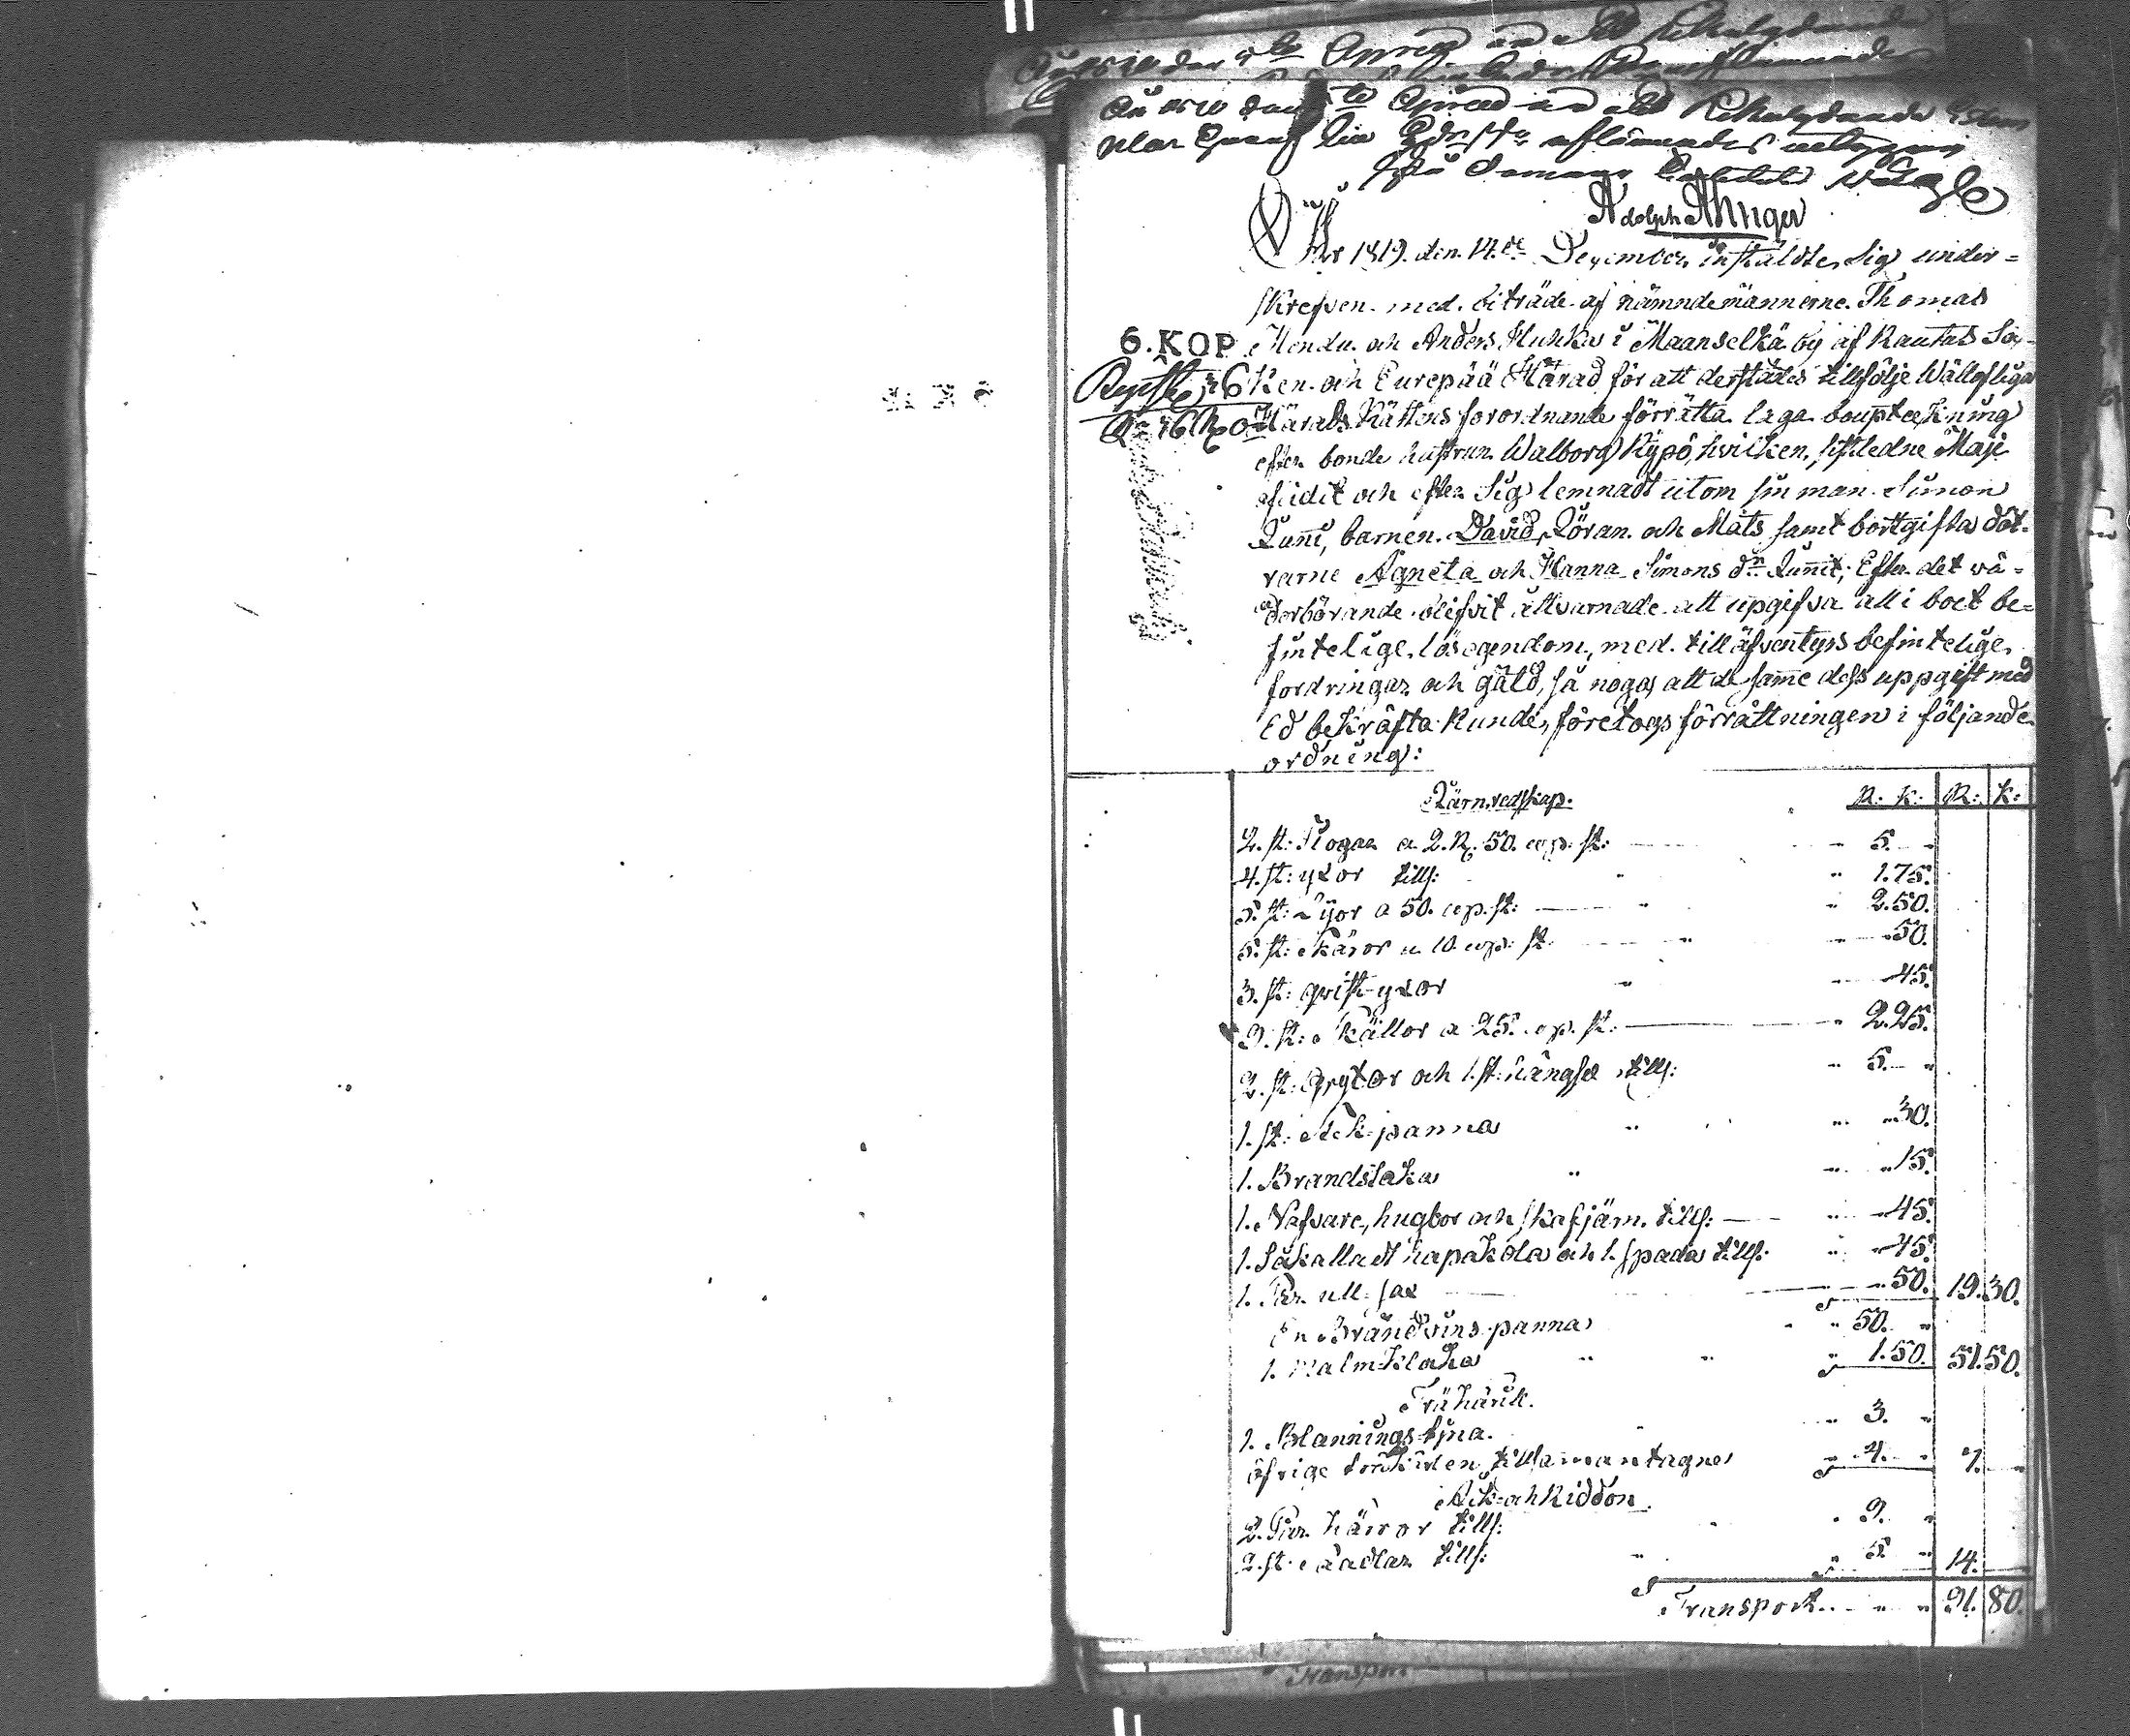 Adolph Ahnger
År 1819. den 14.de December instäldte Sig under=
skrefven med biträde af nämndemännerne Thomas
6.KOP
Mendu och Anders Hukka i Maanselkä by af Rautus Soc-
ken och Eurepää Härad för att derstädes tillfölje Wällofliga
Härads Rättens forordnande förrätta laga bouptekning
efter bonde hustrun Walborg Kypö, hvilken sistledne Maji
afledit och efter Sig lemnadt utom sin man Simon
Lunni, barnen David, Göran och Mats samt bortgifta döt-
rarne Agneta och Hanna Simons dr Lunnit; Efter det we-
derbörande blifvit åtvarnade att upgifva all i boet be=
fintelige lösegendom, med till äfventyrs befintelige
fordringar och gäld, så noga att de samme dess uppgift med
Ed bekräfta kunde, företogs förrättningen i följande
ordning:
Järnredskap. R: K: R: K:
2. st: Plogar a 2. R. 50. cop. st: 5.
4. st: yxor tills: 1.75.
5. st: Lyor a 50. cop. st: 2.50.
5. st: skäror a 10. cop. st: 50.
3. st: qvist-yxor 45.
9. st: skällor a 25. cop. st: 2.25.
2. st: Grytor och 1. st: hängsel tills: 5.
1. st: Stek panna 30.
1. Brandstaka 15.
1. Nafvare, hugbor och skafjärn tills: 45.
1. Såkalladt hapakola och 1. spada tills: 45.
1. Par ull-sax 50. 19.30.
En Brändvins panna 50.
1. Malm klocka 1.50. 51.50.
Trä käril.
1. Blannings tyna. 3.
öfrige torrkärlen tillsamantagne 4. 7.
Åk- och Riddon
2. Par kärror tills: 9.
2. st: Sadlar tills: 5. 14.
Transport 91.80.
Transport